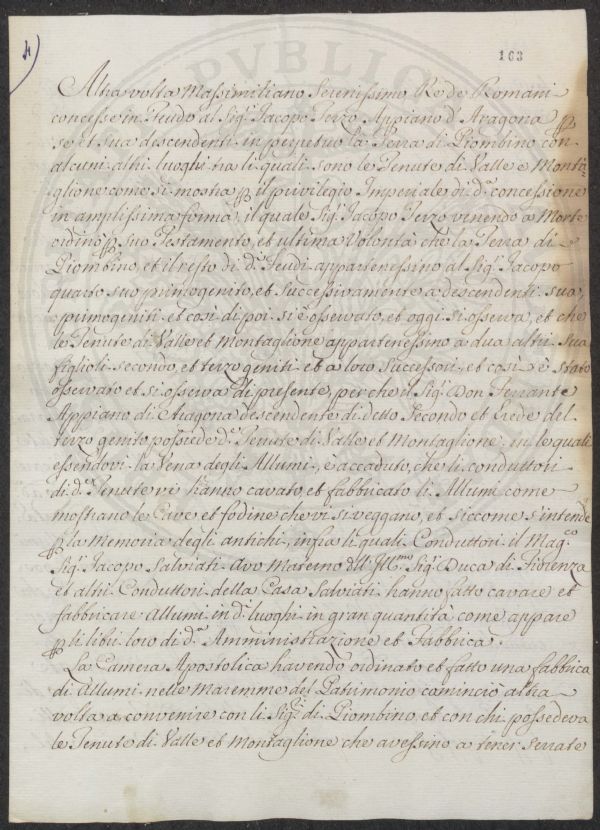 4)
163
PVBLICO
Altra volta Massimiliano Serenissimo Re de Romani
concesse in Feudo al Sig.r Jacopo Terzo Appiano d'Aragona p
se et sua descendenti in perpetuo la Terra di Piombino con
alcuni altri luoghi tra li quali sono le Tenute di Valle e Monta
glione come si mostra p il privilegio Imperiale di d.a concessione
in amplissima forma, il quale Sig.r Jacopo Terzo venendo a Morte
ordinò p suo Testamento, et ultima Volontà che la Terra di
Piombino, et il resto di d.i Feudi appartenessino al Sig.r Jacopo
quarto suo primogenito, et successivamente a descendenti sua
primogeniti et così di poi si è osservato, et oggi si osserva, et che
le Tenute di Valle et Montaglione appartenessino a dua altri sua
figlioli secondo, et terzo geniti et a loro successori, et così è stato
osservato et si osserva di presente, perche il Sig.r Don Ferrante
Appiano di Aragona descendente di detto Secondo et herede del
terzo genito possiede d.e Tenute di Valle et Montaglione, in le quali
essendovi la Vena degli Allumi, è accaduto, che li conduttori
di d.e Tenute vi hanno cavato, et fabbricato li Allumi come
mostrano le Cave et fodine che vi si veggano, et siccome s'intende
p la memoria degli antichi, infra li quali Conduttori il Mag.co
Sig.r Jacopo Salviati Avo Materno dell' Ill.mo Sig.r Duca di Fiorenza
et altri Conduttori della Casa Salviati hanno fatto cavare et
fabbricare Allumi in d.i luoghi in gran quantità come appare
p li libri loro di d.a Amministrazione et Fabbrica.
La Camera Apostolica havendo ordinato et fatto una fabbrica
di Allumi nelle Maremme del Patrimonio cominciò altra
volta a convenire con li Sig.ri di Piombino et con chi possedeva
le Tenute di Valle et Montaglione che avessino a tener serrate